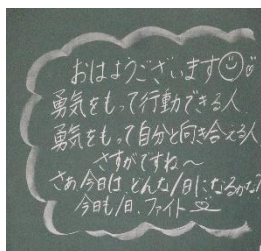 おはようございます
勇気をもって行動できる人
勇気をもって自分と向き合える人
さすがですね〜
さぁ今日は、どんな1日になるかな?
今日も1日、ファイト